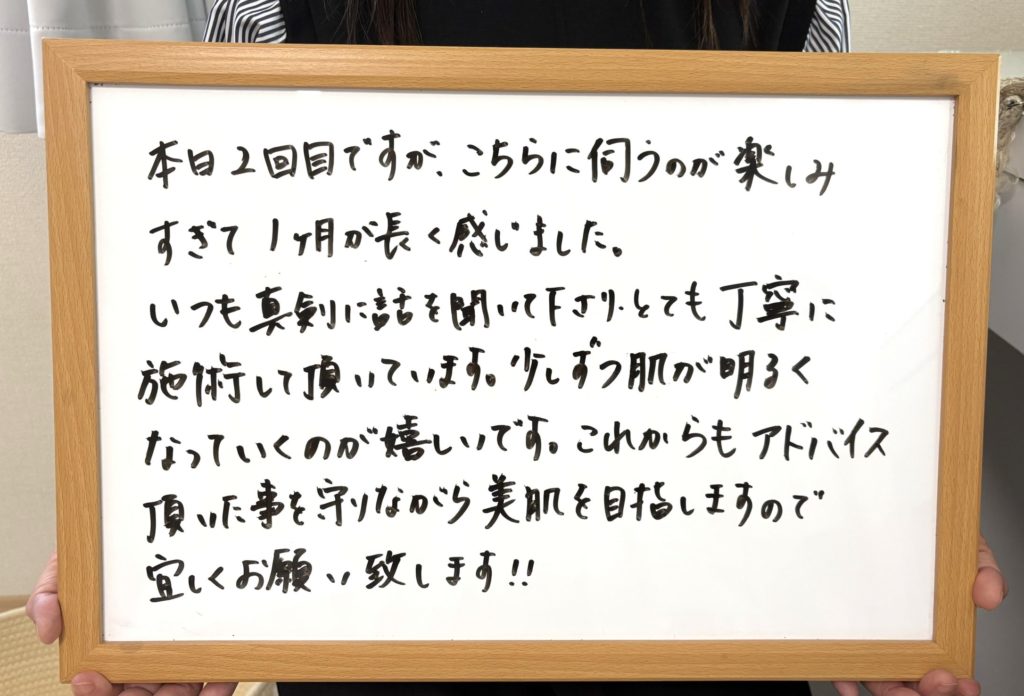 本日2回目ですが、こちらに伺うのが楽しみ
すぎて1ヶ月が長く感じました。
いつも真剣に話を聞いて下さり、とても丁寧に
施術して頂いています。少しずつ肌が明るく
なっていくのが嬉しいです。これからもアドバイス
頂いた事を守りながら美肌を目指しますので
宜しくお願い致します!!